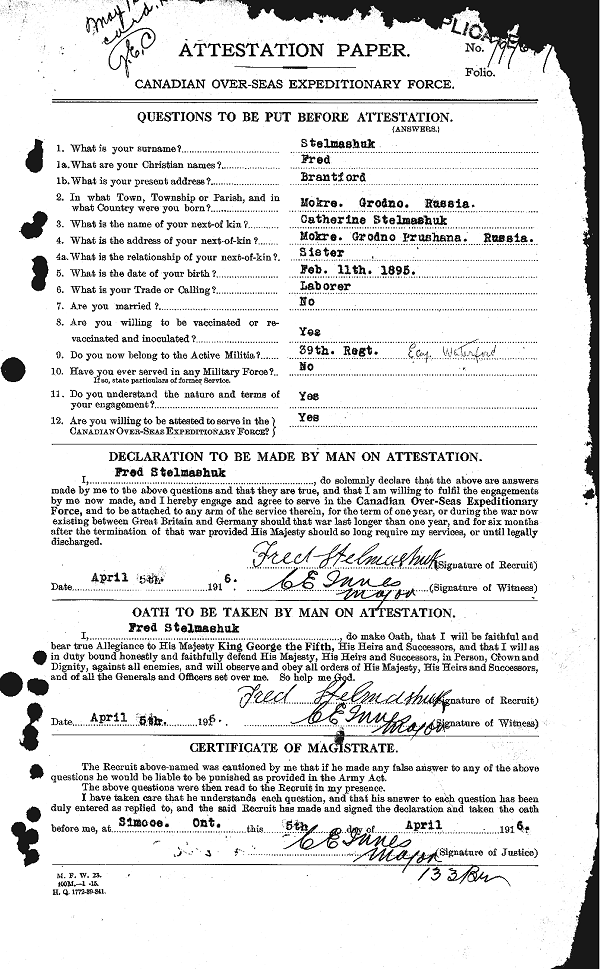 May
J.E.C
ATTESTATION PAPER.
No.
Folio.
CANADIAN OVER-SEAS EXPEDITIONARY FORCE.
QUESTIONS TO BE PUT BEFORE ATTESTATION.
(ANSWERS.)
1. What is your surname? Stelmashuk
1a. What are your Christian names? Fred
1b. What is your present address? Brantford
2. In what Town, Township or Parish, and in
what Country were you born? Mokre. Grodno. Russia.
3. What is the name of your next-of kin? Catherine Stelmashuk
4. What is the address of your next-of-kin? Mokre. Grodno Prushana. Russia.
4a. What is the relationship of your next-of-kin?. Sister
5. What is the date of your birth? Feb. 11th. 1895.
6. What is your Trade or Calling? Laborer
7. Are you married? No
8. Are you willing to be vaccinated or re-
vaccinated and inoculated? Yes
9. Do you now belong to the Active Militia? 39th. Regt. Waterford
10. Have you ever served in any Military Force?.. No
If so, state particulars of former Service.
11. Do you understand the nature and terms of
your engagement? Yes
12. Are you willing to be attested to serve in the
CANADIAN OVER-SEAS EXPEDITIONARY FORCE? Yes
DECLARATION TO BE MADE BY MAN ON ATTESTATION.
I, Fred Stelmashuk, do solemnly declare that the above are answers
made by me to the above questions and that they are true, and that I am willing to fulfil the engagements
by me now made, and I hereby engage and agree to serve in the Canadian Over-Seas Expeditionary
Force, and to be attached to any arm of the service therein, for the term of one year, or during the war now
existing between Great Britain and Germany should that war last longer than one year, and for six months
after the termination of that war provided His Majesty should so long require my services, or until legally
discharged.
Fred Stelmashuk (Signature of Recruit)
Date April 5th. 1916. C E Innes Major (Signature of Witness)
OATH TO BE TAKEN BY MAN ON ATTESTATION.
I, Fred Stelmashuk, do make Oath, that I will be faithful and
bear true Allegiance to His Majesty King George the Fifth, His Heirs and Successors, and that I will as
in duty bound honestly and faithfully defend His Majesty, His Heirs and Successors, in Person, Crown and
Dignity, against all enemies, and will observe and obey all orders of His Majesty, His Heirs and Successors,
and of all the Generals and Officers set over me. So help me God.
Fred Stelmashuk (Signature of Recruit)
Date April 5th. 1916. C E Innes Major (Signature of Witness)
CERTIFICATE OF MAGISTRATE.
The Recruit above-named was cautioned by me that if he made any false answer to any of the above
questions he would be liable to be punished as provided in the Army Act.
The above questions were then read to the Recruit in my presence.
I have taken care that he understands each question, and that his answer to each question has been
duly entered as replied to, and the said Recruit has made and signed the declaration and taken the oath
before me, at Simcoe. Ont. this 5th day of April 1916.
C E Innes Major (Signature of Justice)
133 Bn
M. F. W. 23.
H. Q. 1772-39-841.